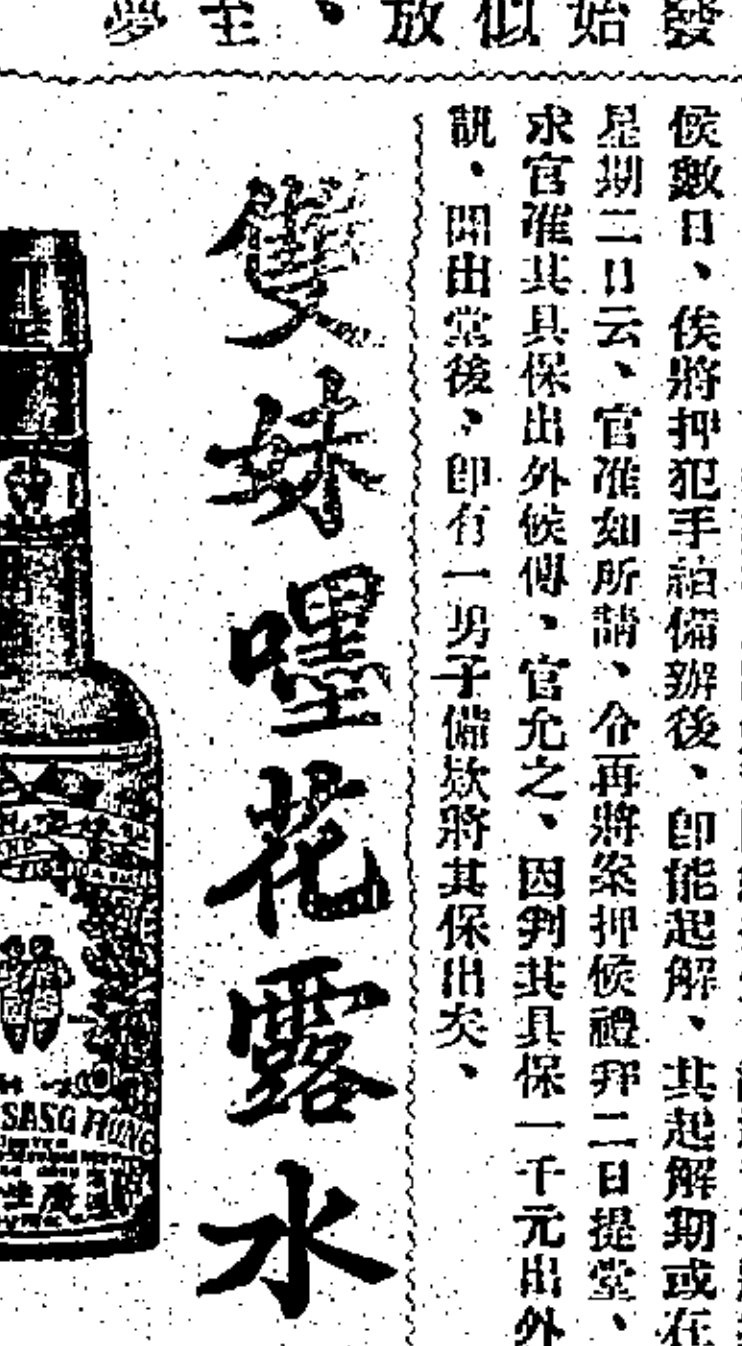 發始似放、至夢
候數日、俟將押犯手續備辦後、卽能起解、其起解期或在
星期二日云、官准如所請、令再將案押候禮拜二日提堂、
求官准其具保出外候傳、官允之、因判其具保一千元出外
訊、開出堂後、卽有一男子備欵將其保出矣、
雙妹嚜花露水
SANG HONG
生廣